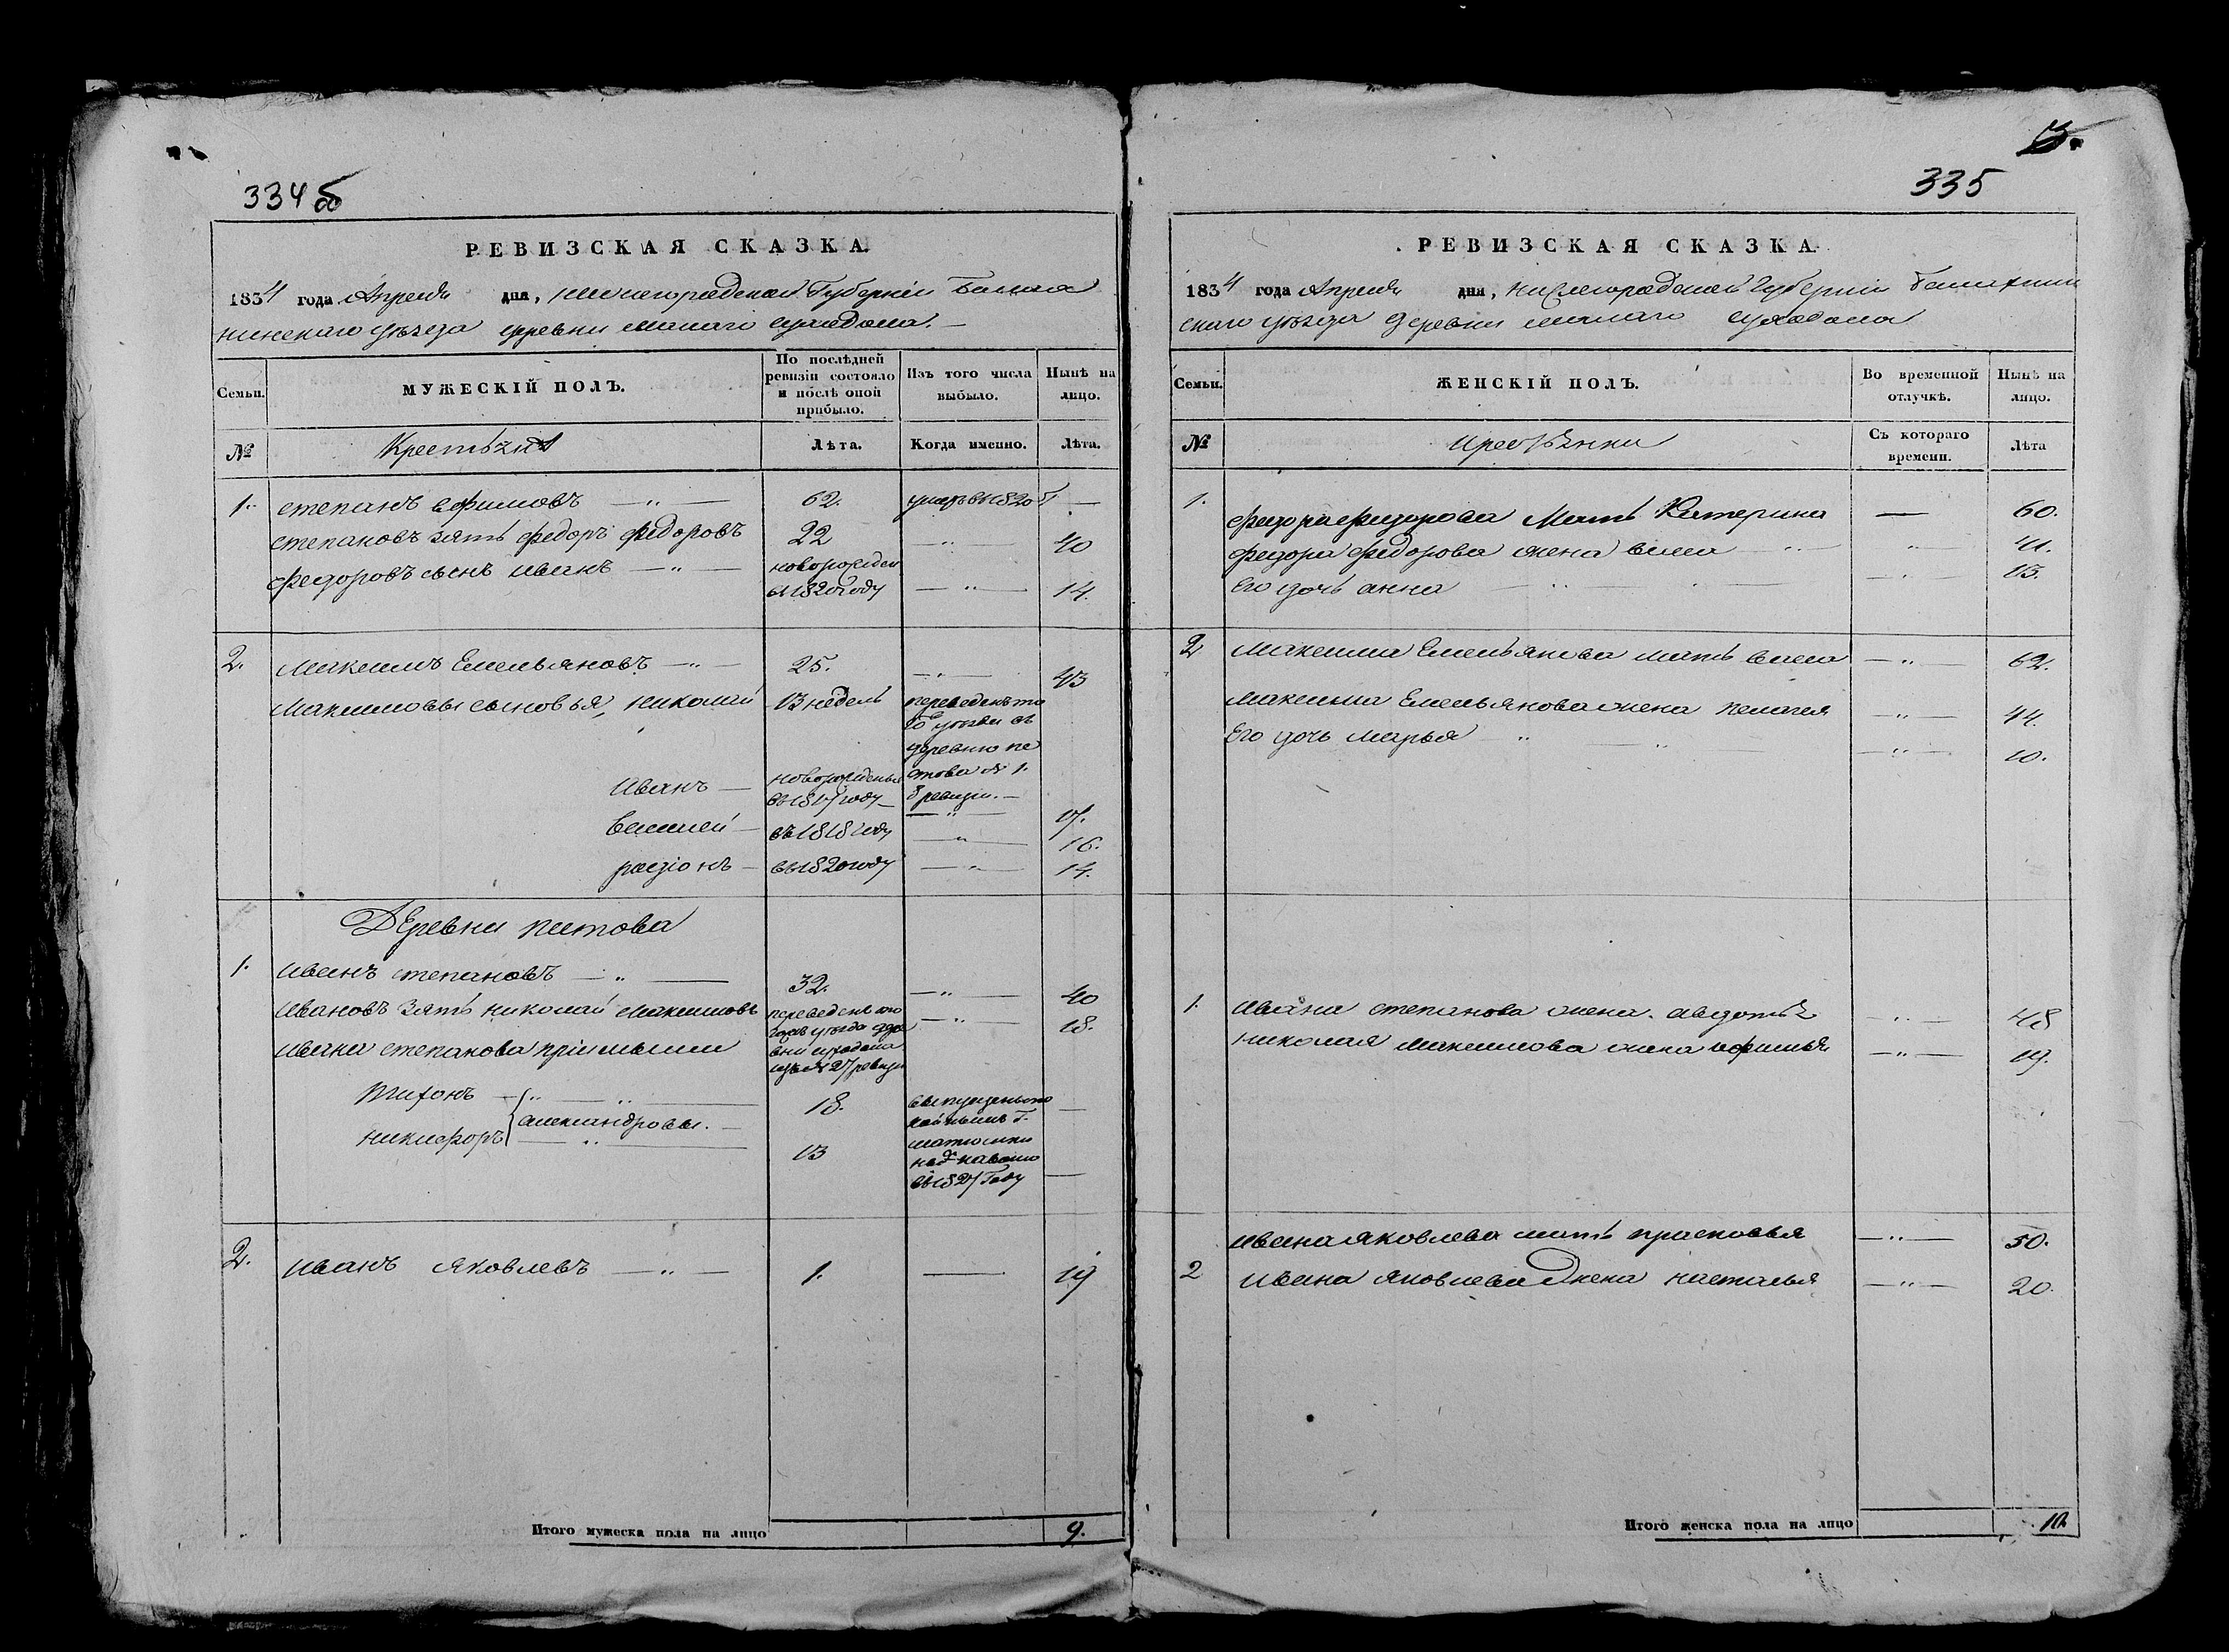 334б
РЕВИЗСКАЯ СКАЗКА.
1834 года Апреля дня, Нижегородской Губерніи Балах
нинскаго уѣзда деревни малаго суходола.
Семьи.
МУЖЕСКІЙ ПОЛЪ.
По послѣдней ревизіи состояло и послѣ оной прибыло.
Изъ того числа выбыло.
Нынѣ на лицо.
№
Крестьяня
Лѣта.
Когда именно.
Лѣта.
1. степанъ ефимовъ 62. умеръ въ 1820 Г
степановъ зять федоръ федоровъ 22 40
федоровъ сынъ иванъ новорожден
въ 1820 году 14.
2. Максимъ Емельяновъ 25. 43
Максимовы сыновья, николай 13 недель переведенъ то
го уезда въ
деревню пе
стова № 1.
8 ревизіи.
Иванъ новорожденыя
въ 1817 году 17.
василей въ 1818 году 16.
родіонъ въ 1820 году 14.
Деревни пестова
1. иванъ степановъ 32. 40
ивановъ зять николай максимовъ переведенъ того 18.
жъ уезда дере
вни суходола
изъ № 2 ревизіи
ивана степанова пріимыши
Тихонъ 18.
александровы.
никифоръ 13
въ 1827 Году
2. иванъ яковлевъ 1. 19
Итого мужеска пола на лицо 9.
335
РЕВИЗСКАЯ СКАЗКА.
1834 года Апреля дня, нижегородской губерніи балахнин
скаго уѣзда деревни малаго суходола
Семьи.
ЖЕНСКІЙ ПОЛЪ.
Во временной отлучкѣ.
Нынѣ на лицо.
№
Крестьянки
Съ котораго времени.
Лѣта
1. федора федорова мать Катерина 60.
федора федорова жена васса 41.
Его дочь анна 13.
2 Максима Емельянова мать васса 62.
максима Емельянова жена пелагея 44.
Его дочь марья 10.
1. ивана степанова жена авдотья 48
николая максимова жена афимья 19.
ивана яковлева мать прасковья 50.
2 ивана яковлева жена насталья 20.
Итого женска пола на лицо 10